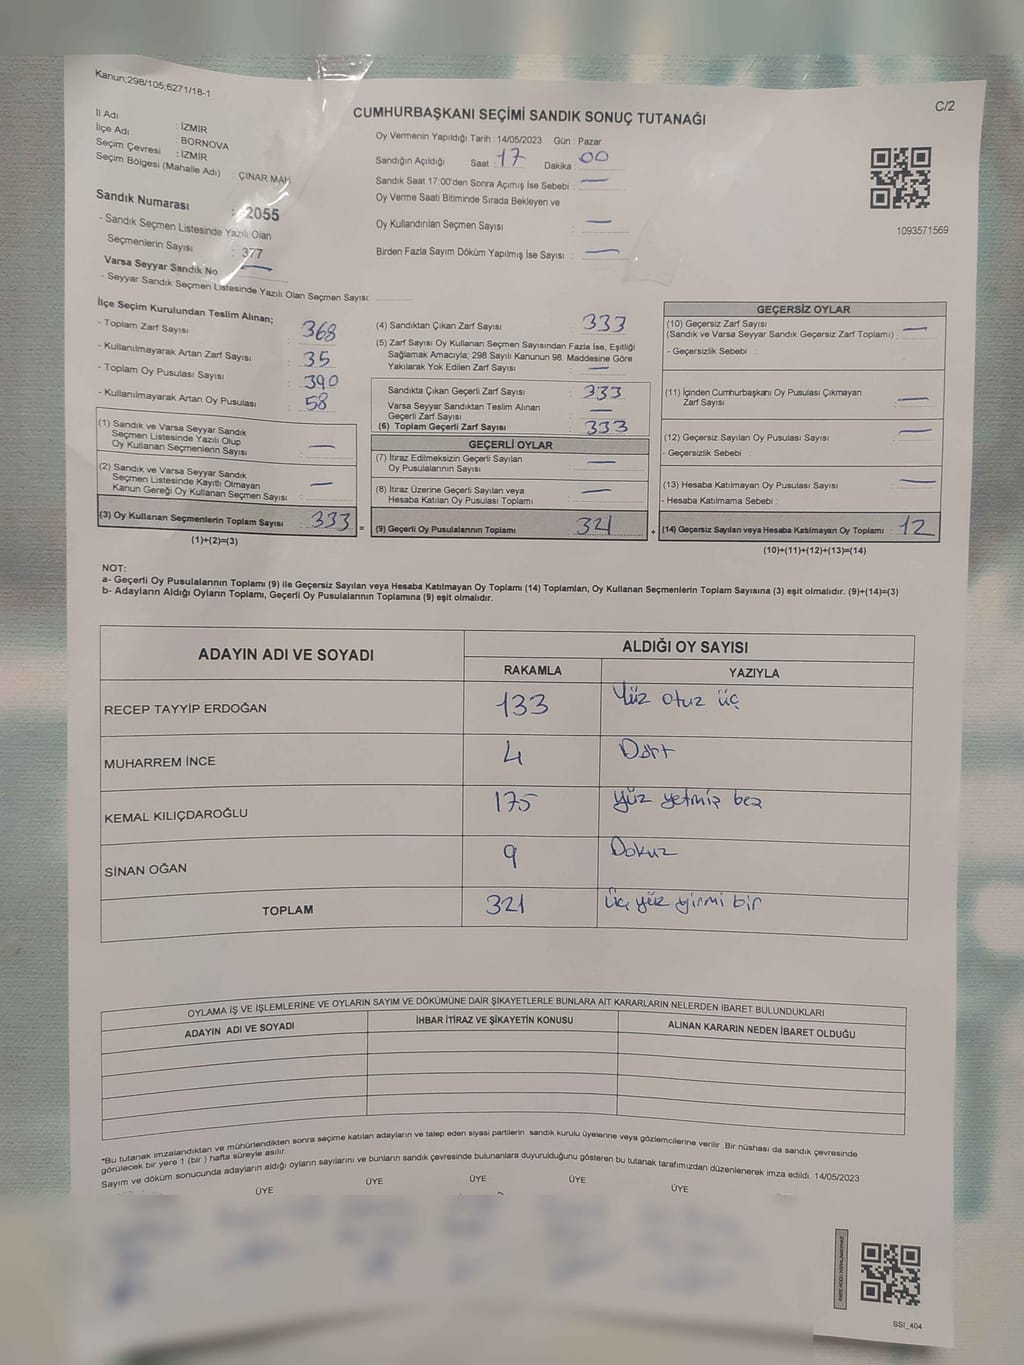 Kanun;298/105;6271/18-1
C/2
CUMHURBAŞKANI SEÇİMİ SANDIK SONUÇ TUTANAĞI
İl Adı : İZMİR
İlçe Adı : BORNOVA
Seçim Çevresi : İZMİR
Seçim Bölgesi (Mahalle Adı) : ÇINAR MAH
Sandık Numarası : 2055
- Sandık Seçmen Listesinde Yazılı Olan
Seçmenlerin Sayısı : 377
Varsa Seyyar Sandık No —
- Seyyar Sandık Seçmen Listesinde Yazılı Olan Seçmen Sayısı:
Oy Vermenin Yapıldığı Tarih : 14/05/2023 Gün : Pazar
Sandığın Açıldığı Saat : 17 Dakika : 00
Sandık Saat 17:00'den Sonra Açımış İse Sebebi : —
Oy Verme Saati Bitiminde Sırada Bekleyen ve
Oy Kullandırılan Seçmen Sayısı : —
Birden Fazla Sayım Döküm Yapılmış İse Sayısı : —
1093571569
İlçe Seçim Kurulundan Teslim Alınan;
- Toplam Zarf Sayısı : 368
- Kullanılmayarak Artan Zarf Sayısı : 35
- Toplam Oy Pusulası Sayısı : 390
- Kullanılmayarak Artan Oy Pusulası : 58
(1) Sandık ve Varsa Seyyar Sandık
Seçmen Listesinde Yazılı Olup
Oy Kullanan Seçmenlerin Sayısı : —
(2) Sandık ve Varsa Seyyar Sandık
Seçmen Listesinde Kayıtlı Olmayan
Kanun Gereği Oy Kullanan Seçmen Sayısı : —
(3) Oy Kullanan Seçmenlerin Toplam Sayısı : 333 =
(1)+(2)=(3)
(4) Sandıktan Çıkan Zarf Sayısı : 333
(5) Zarf Sayısı Oy Kullanan Seçmen Sayısından Fazla İse, Eşitliği
Sağlamak Amacıyla; 298 Sayılı Kanunun 98. Maddesine Göre
Yakılarak Yok Edilen Zarf Sayısı : —
Sandıkta Çıkan Geçerli Zarf Sayısı : 333
Varsa Seyyar Sandıktan Teslim Alınan
Geçerli Zarf Sayısı : —
(6) Toplam Geçerli Zarf Sayısı : 333
GEÇERLİ OYLAR
(7) İtiraz Edilmeksizin Geçerli Sayılan
Oy Pusulalarının Sayısı : —
(8) İtiraz Üzerine Geçerli Sayılan veya
Hesaba Katılan Oy Pusulası Toplamı : —
(9) Geçerli Oy Pusulalarının Toplamı : 321 +
GEÇERSİZ OYLAR
(10) Geçersiz Zarf Sayısı
(Sandık ve Varsa Seyyar Sandık Geçersiz Zarf Toplamı) : —
- Geçersizlik Sebebi :
(11) İçinden Cumhurbaşkanı Oy Pusulası Çıkmayan
Zarf Sayısı : —
(12) Geçersiz Sayılan Oy Pusulası Sayısı : —
- Geçersizlik Sebebi :
(13) Hesaba Katılmayan Oy Pusulası Sayısı : —
- Hesaba Katılmama Sebebi :
(14) Geçersiz Sayılan veya Hesaba Katılmayan Oy Toplamı : 12
(10)+(11)+(12)+(13)=(14)
NOT:
a- Geçerli Oy Pusulalarının Toplamı (9) ile Geçersiz Sayılan veya Hesaba Katılmayan Oy Toplamı (14) Toplamları, Oy Kullanan Seçmenlerin Toplam Sayısına (3) eşit olmalıdır. (9)+(14)=(3)
b- Adayların Aldığı Oyların Toplamı, Geçerli Oy Pusulalarının Toplamına (9) eşit olmalıdır.
ADAYIN ADI VE SOYADI ALDIĞI OY SAYISI
RAKAMLA YAZIYLA
RECEP TAYYİP ERDOĞAN 133 Yüz otuz üç
MUHARREM İNCE 4 Dört
KEMAL KILIÇDAROĞLU 175 yüz yetmiş beş
SİNAN OĞAN 9 Dokuz
TOPLAM 321 üç yüz yirmi bir
OYLAMA İŞ VE İŞLEMLERİNE VE OYLARIN SAYIM VE DÖKÜMÜNE DAİR ŞİKAYETLERLE BUNLARA AİT KARARLARIN NELERDEN İBARET BULUNDUKLARI
ADAYIN ADI VE SOYADI İHBAR İTİRAZ VE ŞİKAYETİN KONUSU ALINAN KARARIN NEDEN İBARET OLDUĞU
*Bu tutanak imzalandıktan ve mühürlendikten sonra seçime katılan adayların ve talep eden siyasi partilerin sandık kurulu üyelerine veya gözlemcilerine verilir. Bir nüshası da sandık çevresinde
görülecek bir yere 1 (bir ) hafta süreyle asılır.
Sayım ve döküm sonucunda adayların aldığı oyların sayılarını ve bunların sandık çevresinde bulunanlara duyurulduğunu gösteren bu tutanak tarafımızdan düzenlenerek imza edildi. 14/05/2023
ÜYE ÜYE ÜYE ÜYE ÜYE
SSI_404